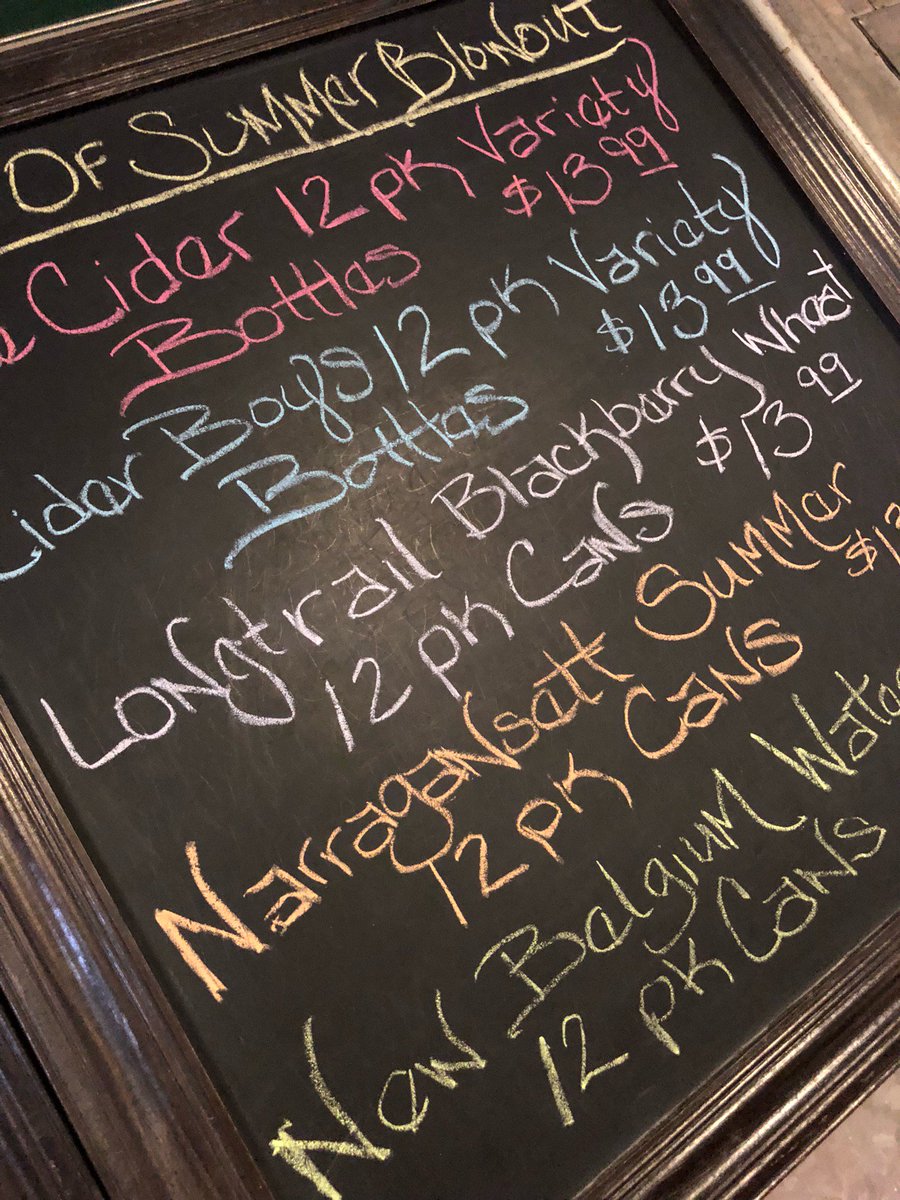 Of Summer Blowout
Cider 12 pk Variety
Bottles $13.99
Cider Boys 12 pk Variety
Bottles $13.99
Longtrail Blackberry Wheat
12 pk Cans $13.99
Narragansett Summer
12 pk Cans
New Belgium
12 pk Cans